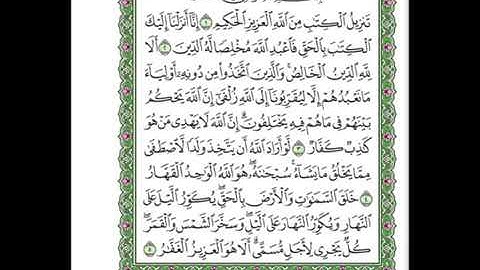 تَنزِيلُ ٱلْكِتَٰبِ مِنَ ٱللَّهِ ٱلْعَزِيزِ ٱلْحَكِيمِ ١ إِنَّآ أَنزَلْنَآ إِلَيْكَ
ٱلْكِتَٰبَ بِٱلْحَقِّ فَٱعْبُدِ ٱللَّهَ مُخْلِصًا لَّهُ ٱلدِّينَ ٢ أَلَا
لِلَّهِ ٱلدِّينُ ٱلْخَالِصُ ۚ وَٱلَّذِينَ ٱتَّخَذُوا۟ مِن دُونِهِۦٓ أَوْلِيَآءَ
مَا نَعْبُدُهُمْ إِلَّا لِيُقَرِّبُونَآ إِلَى ٱللَّهِ زُلْفَىٰٓ إِنَّ ٱللَّهَ يَحْكُمُ
بَيْنَهُمْ فِى مَا هُمْ فِيهِ يَخْتَلِفُونَ ۗ إِنَّ ٱللَّهَ لَا يَهْدِى مَنْ هُوَ
كَٰذِبٌ كَفَّارٌ ٣ لَّوْ أَرَادَ ٱللَّهُ أَن يَتَّخِذَ وَلَدًا لَّٱصْطَفَىٰ
مِمَّا يَخْلُقُ مَا يَشَآءُ ۚ سُبْحَٰنَهُۥ ۖ هُوَ ٱللَّهُ ٱلْوَٰحِدُ ٱلْقَهَّارُ
٤ خَلَقَ ٱلسَّمَٰوَٰتِ وَٱلْأَرْضَ بِٱلْحَقِّ ۖ يُكَوِّرُ ٱلَّيْلَ عَلَى
ٱلنَّهَارِ وَيُكَوِّرُ ٱلنَّهَارَ عَلَى ٱلَّيْلِ ۖ وَسَخَّرَ ٱلشَّمْسَ وَٱلْقَمَرَ ۖ
كُلٌّ يَجْرِى لِأَجَلٍ مُّسَمًّى ۗ أَلَا هُوَ ٱلْعَزِيزُ ٱلْغَفَّٰرُ ٥